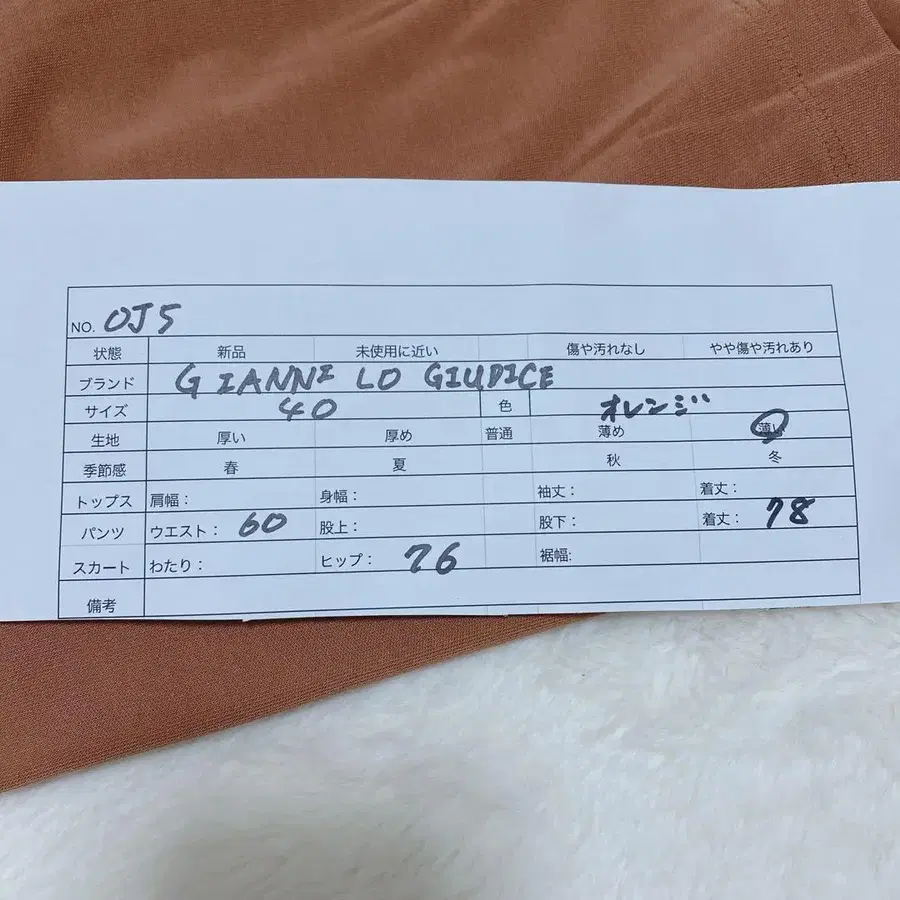 NO. OJ5
状態 新品 未使用に近い 傷や汚れなし やや傷や汚れあり
ブランド GIANNI LO GIUDICE
サイズ 40 色 オレンジ
生地 厚い 厚め 普通 薄め 薄い
季節感 春 夏 秋 冬
トップス 肩幅： 身幅： 袖丈： 着丈：
パンツ ウエスト： 60 股上： 股下： 着丈： 78
スカート わたり： ヒップ： 76 裾幅:
備考